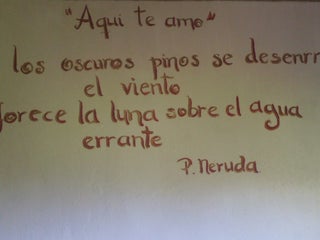 "Aqui te amo"
los oscuros pinos se desenrr
el viento
forece la luna sobre el agua
errante
P. Neruda